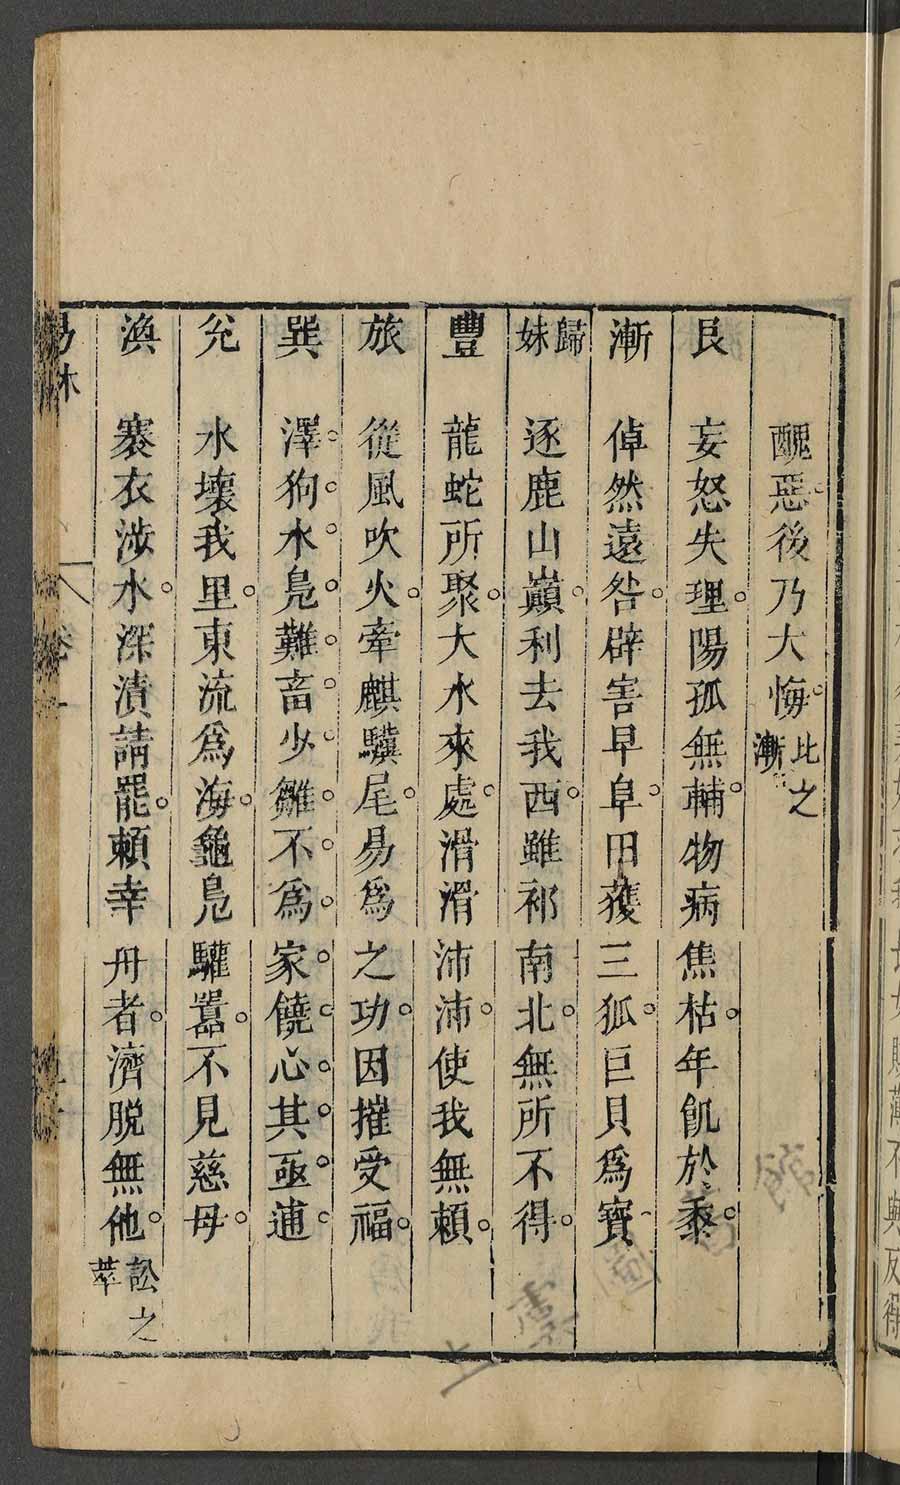 醜惡。後乃大悔。比之漸
艮 妄怒失理。陽孤無輔。物病焦枯。年飢於黍。
漸 倬然遠咎。辟害早阜。田獲三狐。巨貝為寶
歸妹 逐鹿山巔。利去我西。雖祁南北。無所不得。
豐 龍蛇所聚。大水來處。滑滑沛沛。使我無賴。
旅 從風吹火。牽麒驥尾。易為之功。因摧受福。
巽 澤。狗。水。鳧。難。畜。少。雛。不。為。家。饒。心。其。亟。逋。
兌 水壞我里。東流為海。龜鳧驩嚚。不見慈母。
渙 褰衣涉水。深漬請罷。賴幸舟者。濟脫無他。訟之萃
易林 卷一